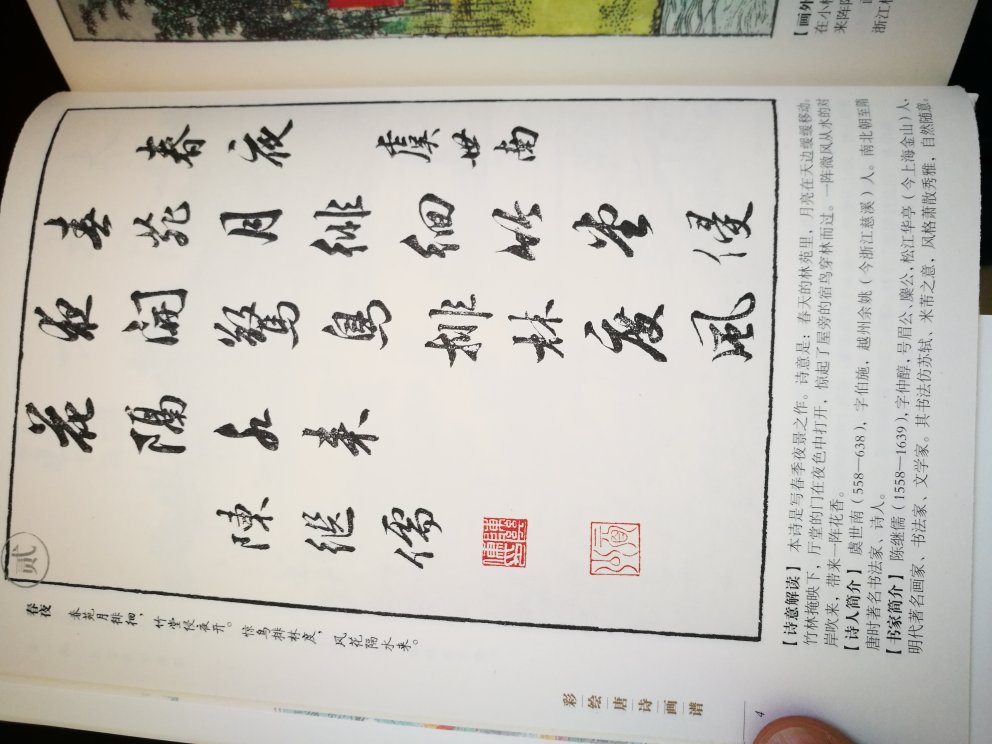 【画外
在小林
来阵阵
浙江杭
春夜 虞世南
春苑月徘徊竹堂侵
夜開驚鳥排林度風
花隔水來
陳繼儒
贰
春夜
春苑月徘徊，
竹堂侵夜开。
惊鸟排林度，
风花隔水来。
【诗意解读】 本诗是写春季夜景之作。诗意是：春天的林苑里，月亮在天边缓缓移动。
竹林掩映下，厅堂的门在夜色中打开，惊起了屋旁的宿鸟穿林而过。一阵微风从水的对
岸吹来，带来一阵花香。
【诗人简介】 虞世南（558—638），字伯施，越州余姚（今浙江慈溪）人。南北朝至隋
唐时著名书法家、诗人。
【书家简介】 陈继儒（1558—1639），字仲醇，号眉公、麋公，松江华亭（今上海金山）人，
明代著名画家、书法家、文学家。其书法仿苏轼、米芾之意，风格萧散秀雅，自然随意。
彩绘唐诗画谱
4